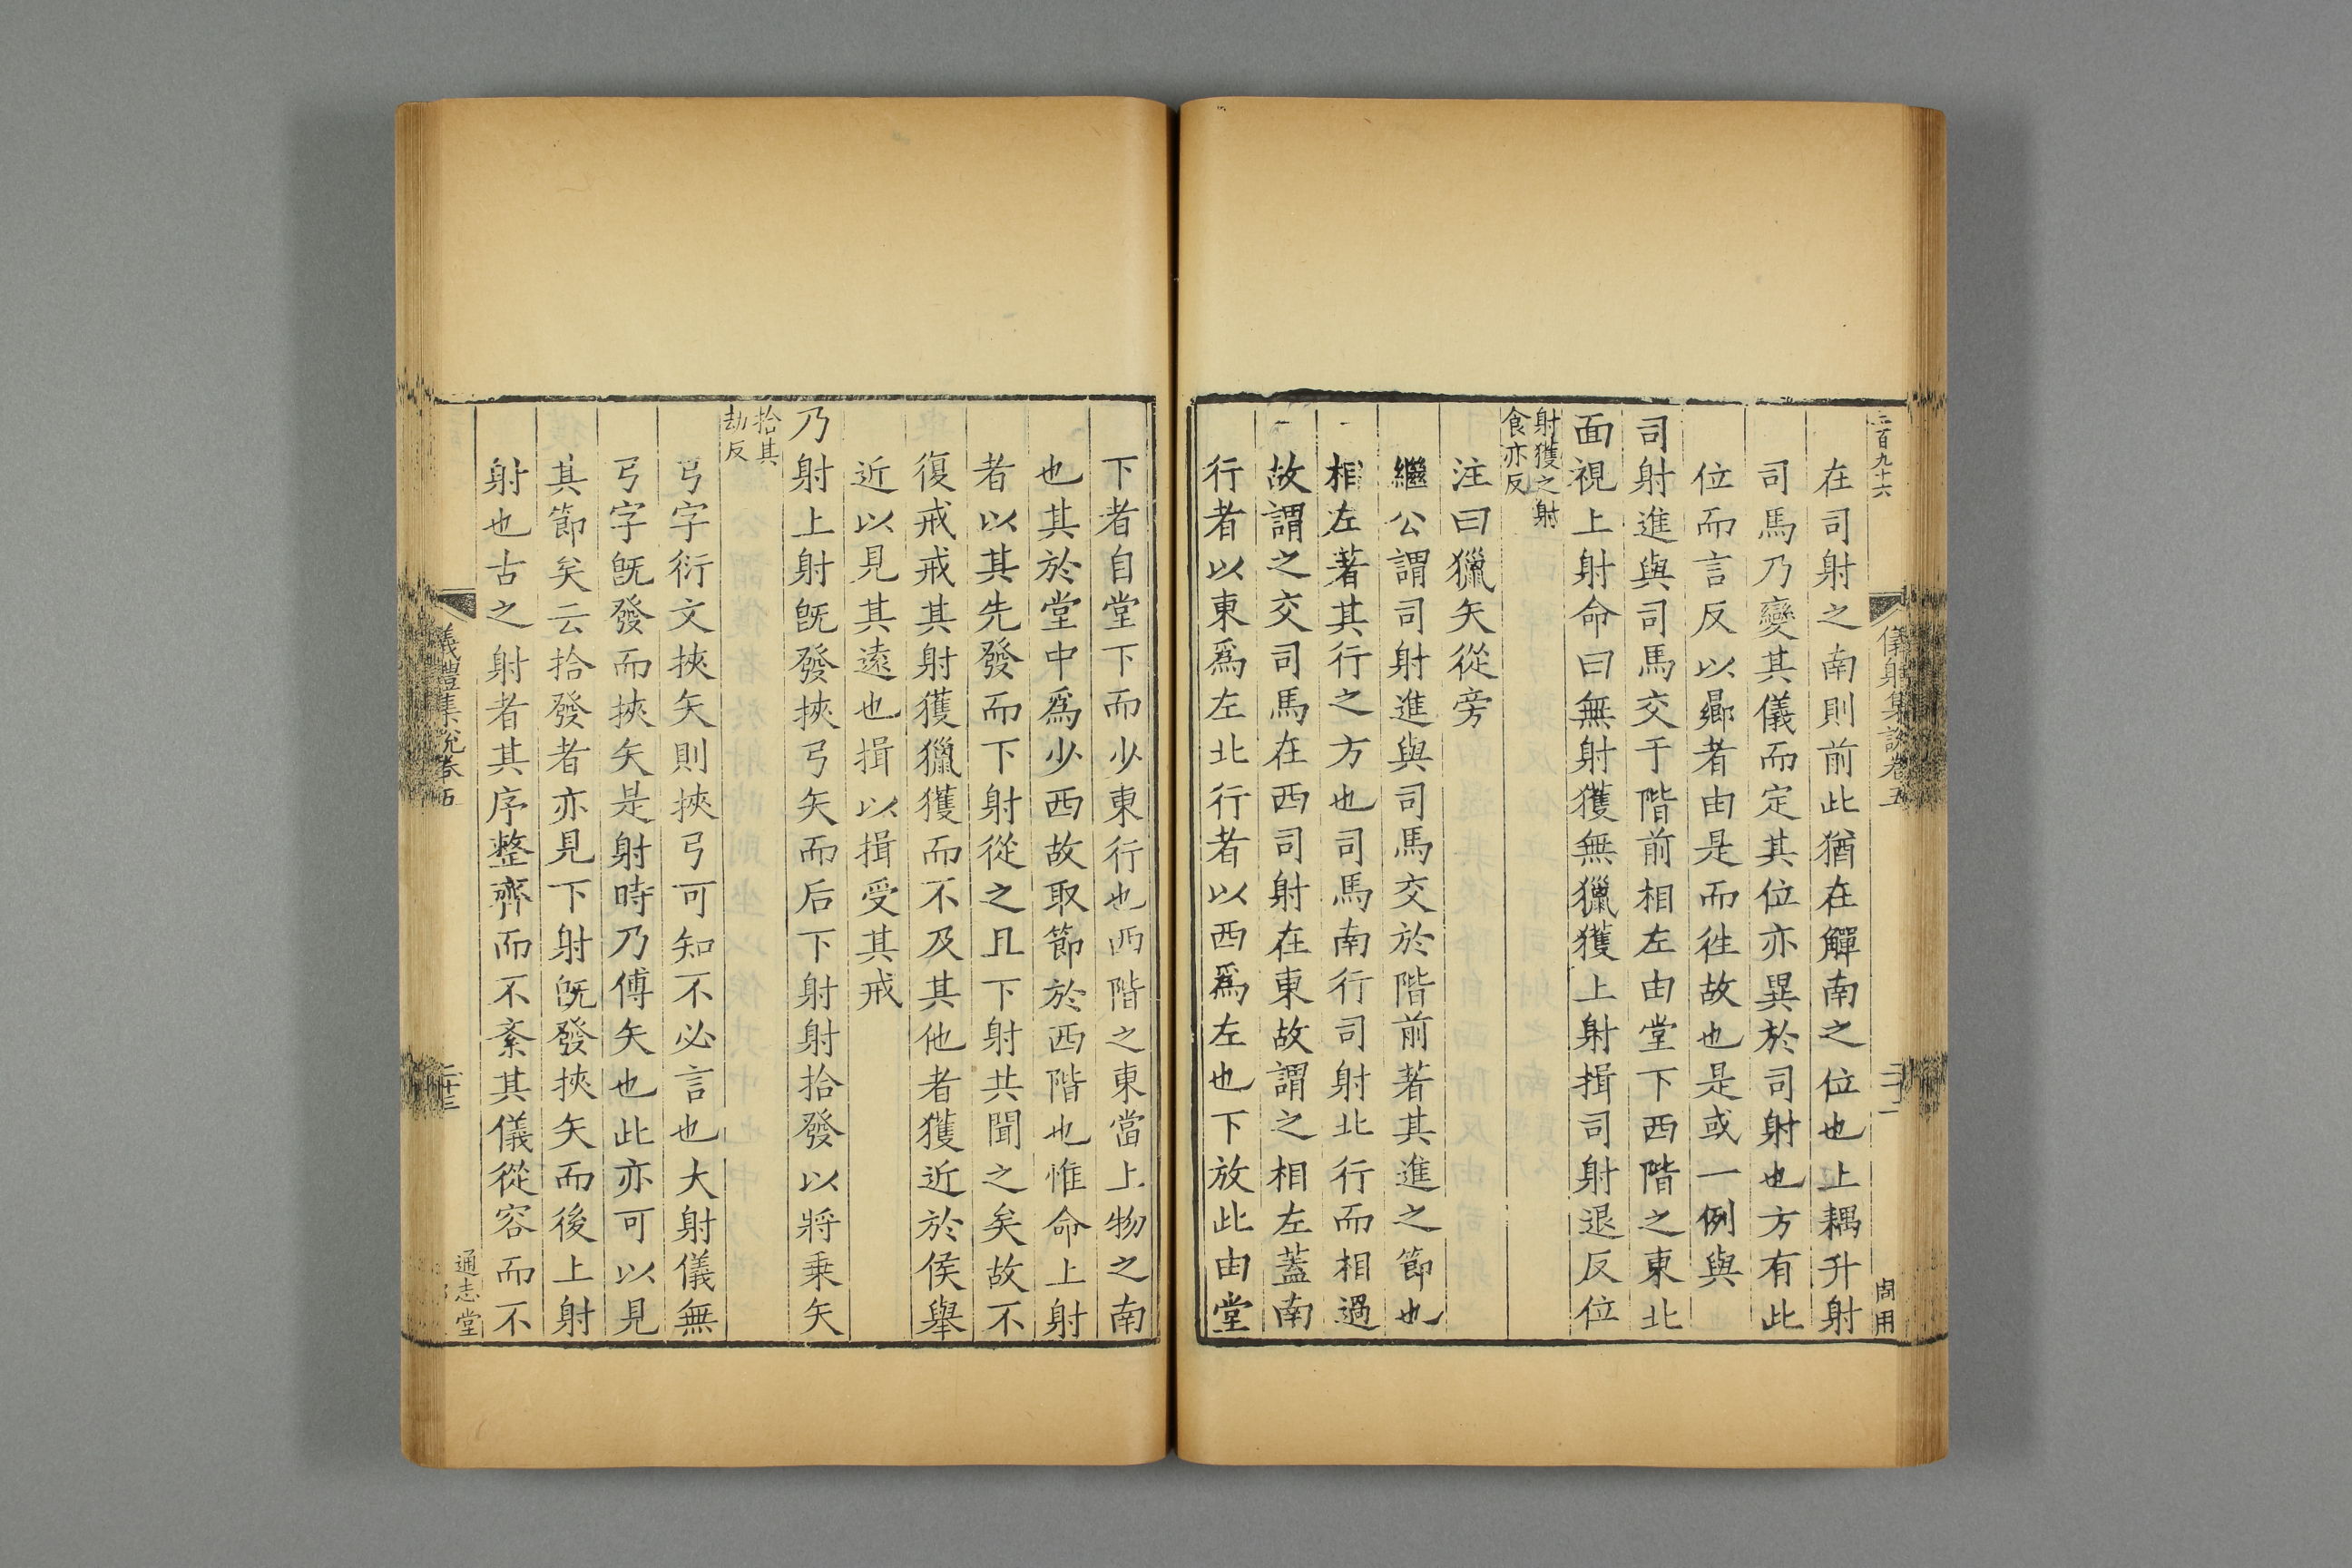 在司射之南則前此猶在觶南之位也上耦升射
司馬乃變其儀而定其位亦異於司射也方有此
位而言反以鄉者由是而徃故也是或一例與
司射進與司馬交于階前相左由堂下西階之東北
面視上射命曰無射獲無獵獲上射揖司射退反位
射獲之射
食亦反
注曰獵矢從旁
繼公謂司射進與司馬交於階前著其進之節也
相左著其行之方也司馬南行司射北行而相過
故謂之交司馬在西司射在東故謂之相左蓋南
行者以東爲左北行者以西爲左也下放此由堂
下者自堂下而少東行也西階之東當上物之南
也其於堂中爲少西故取節於西階也惟命上射
者以其先發而下射從之且下射共聞之矣故不
復戒戒其射獲獵獲而不及其他者獲近於侯舉
近以見其遠也揖以揖受其戒
乃射上射旣發挾弓矢而后下射射拾發以將乗矢
拾其
劫反
弓字衍文挾矢則挾弓可知不必言也大射儀無
弓字旣發而挾矢是射時乃傅矢也此亦可以見
其節矣云拾發者亦見下射旣發挾矢而後上射
射也古之射者其序整齊而不紊其儀從容而不
儀禮集說卷五
二十三
通志堂